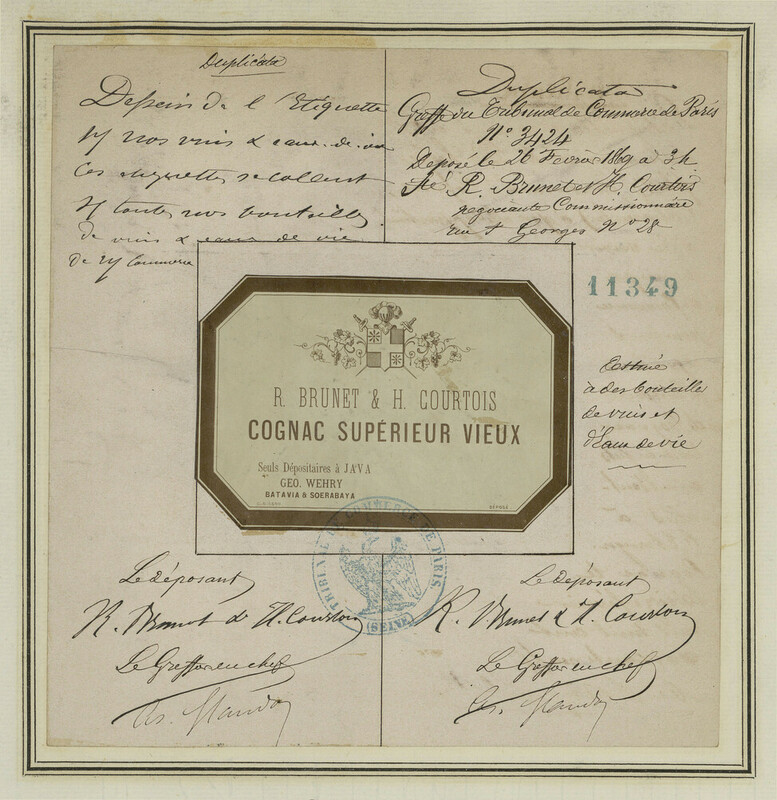 Duplicata
Dessin de l'Etiquette
nos vins & eaux-de-vie
ces étiquettes se collent
toutes nos bouteilles
de vins & eaux de vie
de Commerce
Duplicata
Greffe du Tribunal de Commerce de Paris
N° 3424
Déposé le 26 Février 1869 à 3h
R. Brunet et H. Courtois
négociants Commissionnaire
rue St Georges N° 28
11349
R. BRUNET & H. COURTOIS
COGNAC SUPÉRIEUR VIEUX
Seuls Dépositaires à JAVA
GEO. WEHRY
BATAVIA & SOERABAYA
DÉPOSÉ
à des bouteille
de vins et
d'Eaux de vie
TRIBUNAL DE COMMERCE DE PARIS
(SEINE)
Le déposant
R. Brunet & H. Courtois
Le Greffier en chef
Le déposant
R. Brunet & H. Courtois
Le Greffier en chef